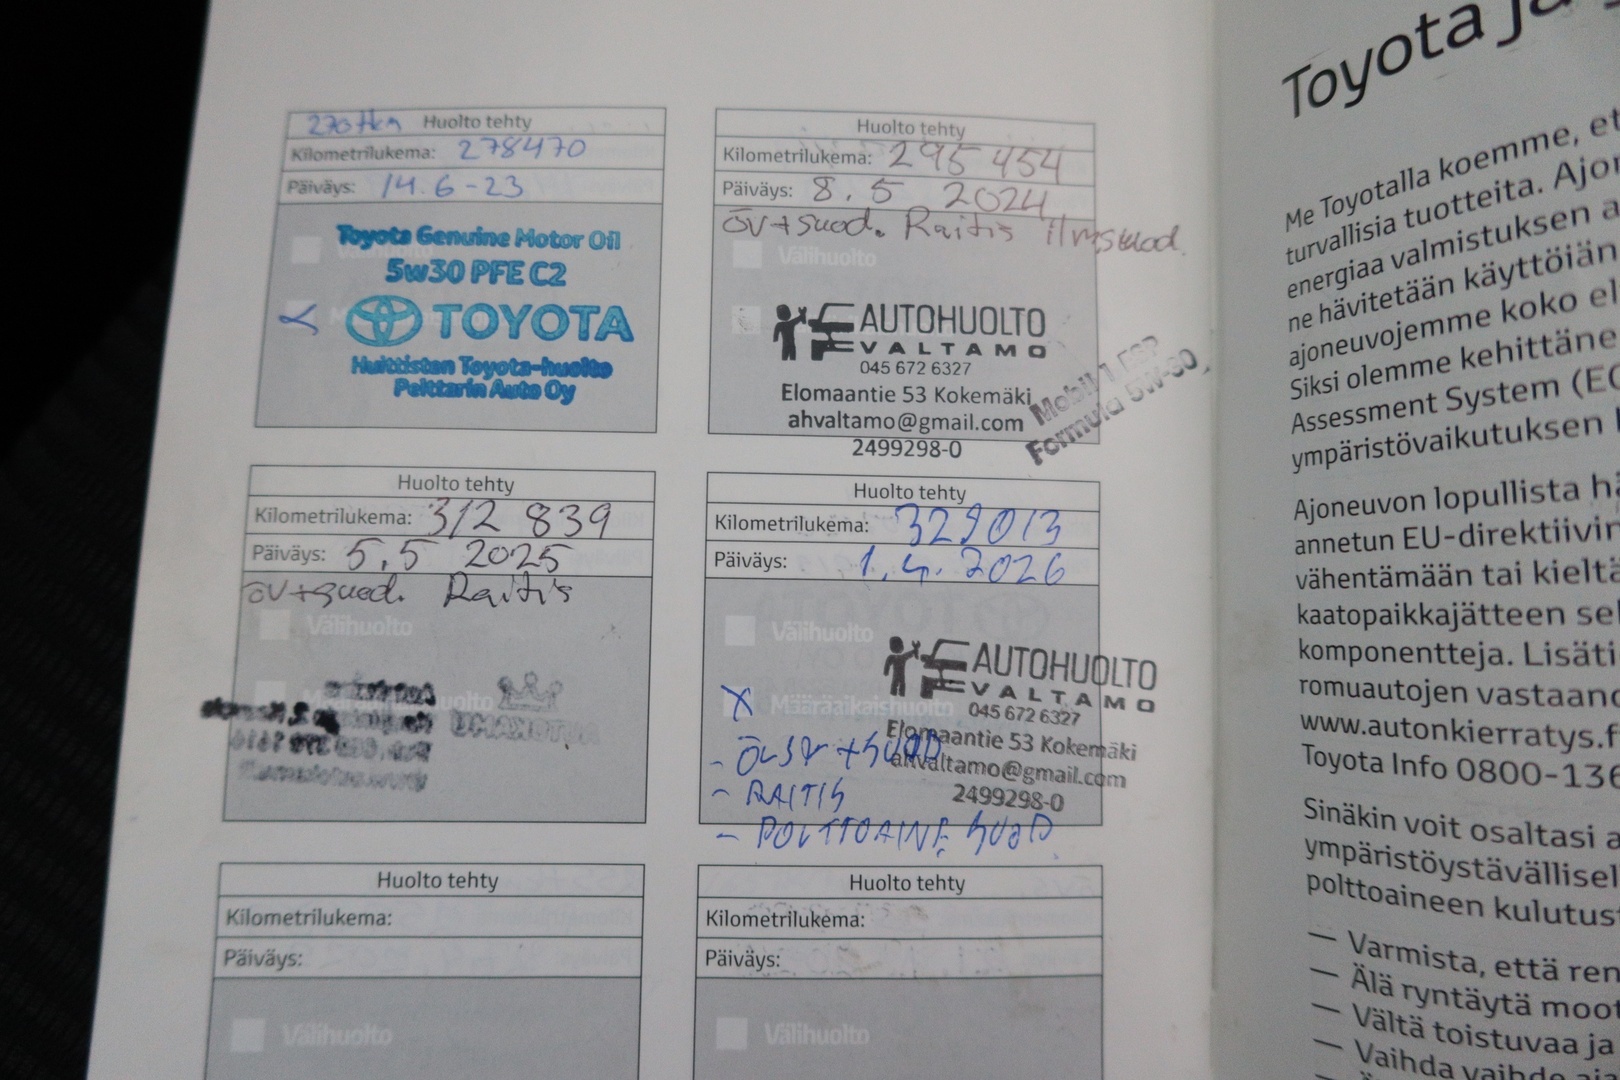 Huolto tehty
Kilometrilukema: 278470
Päiväys: 14.6-23
Toyota Genuine Motor Oil
5w30 PFE C2
TOYOTA
Huittisten Toyota-huolto
Pelttarin Auto Oy
Huolto tehty
Kilometrilukema: 295 454
Päiväys: 8.5 2024
öv+suod. Raitis ilmsuod.
Välihuolto
AUTOHUOLTO
VALTAMO
045 672 6327
Elomaantie 53 Kokemäki
ahvaltamo@gmail.com
2499298-0
Mobil 1 ESP
Formula 5W-30
Huolto tehty
Kilometrilukema: 312 839
Päiväys: 5.5 2025
öv+suod. Raitis
Välihuolto
Huolto tehty
Kilometrilukema: 329013
Päiväys: 1.4.2026
Välihuolto
X Määräaikaishuolto
AUTOHUOLTO
VALTAMO
045 672 6327
Elomaantie 53 Kokemäki
ahvaltamo@gmail.com
2499298-0
- RAITIS
- POLTTOAINE SUOD
Huolto tehty
Kilometrilukema:
Päiväys:
Välihuolto
Huolto tehty
Kilometrilukema:
Päiväys:
Välihuolto
Toyota ja
Me Toyotalla koemme, et
turvallisia tuotteita. Ajon
energiaa valmistuksen a
ne hävitetään käyttöiän
ajoneuvojemme koko el
Siksi olemme kehittäne
Assessment System (EC
ympäristövaikutuksen
Ajoneuvon lopullista hä
annetun EU-direktiivin
vähentämään tai kieltä
kaatopaikkajätteen sel
komponentteja. Lisäti
romuautojen vastaano
www.autonkierratys.f
Toyota Info 0800-136
Sinäkin voit osaltasi a
ympäristöystävällisel
polttoaineen kulutus
— Varmista, että ren
— Älä ryntäytä moot
— Vältä toistuvaa ja
— Vaihda vaihde aja